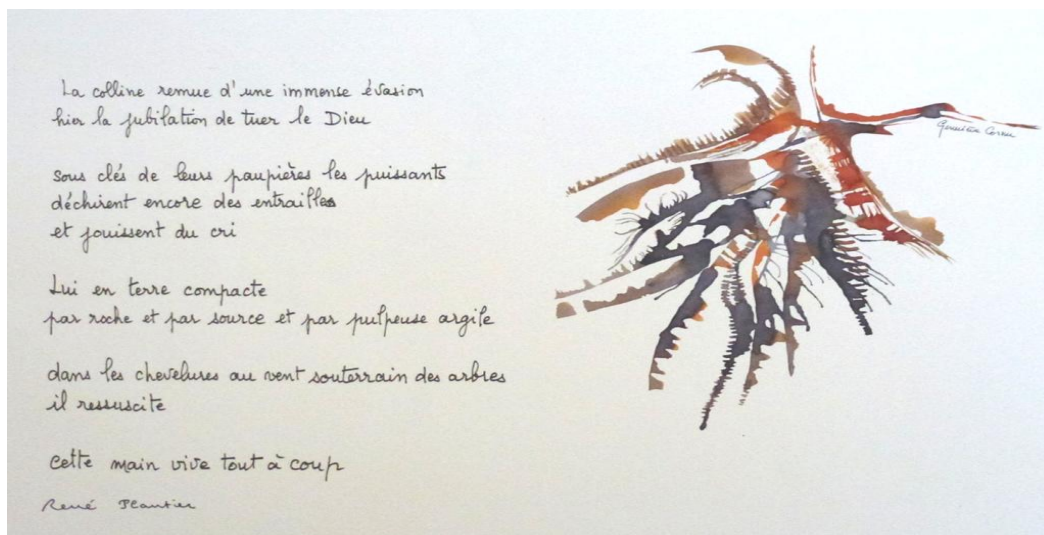 La colline remue d'une immense évasion
hier la jubilation de tuer le Dieu
sous clés de leurs paupières les puissants
déchirent encore des entrailles
et jouissent du cri
Lui en terre compacte
par roche et par source et par pulpeuse argile
dans les chevelures au vent souterrain des arbres
il ressuscite
Cette main vive tout à coup
René Plantier